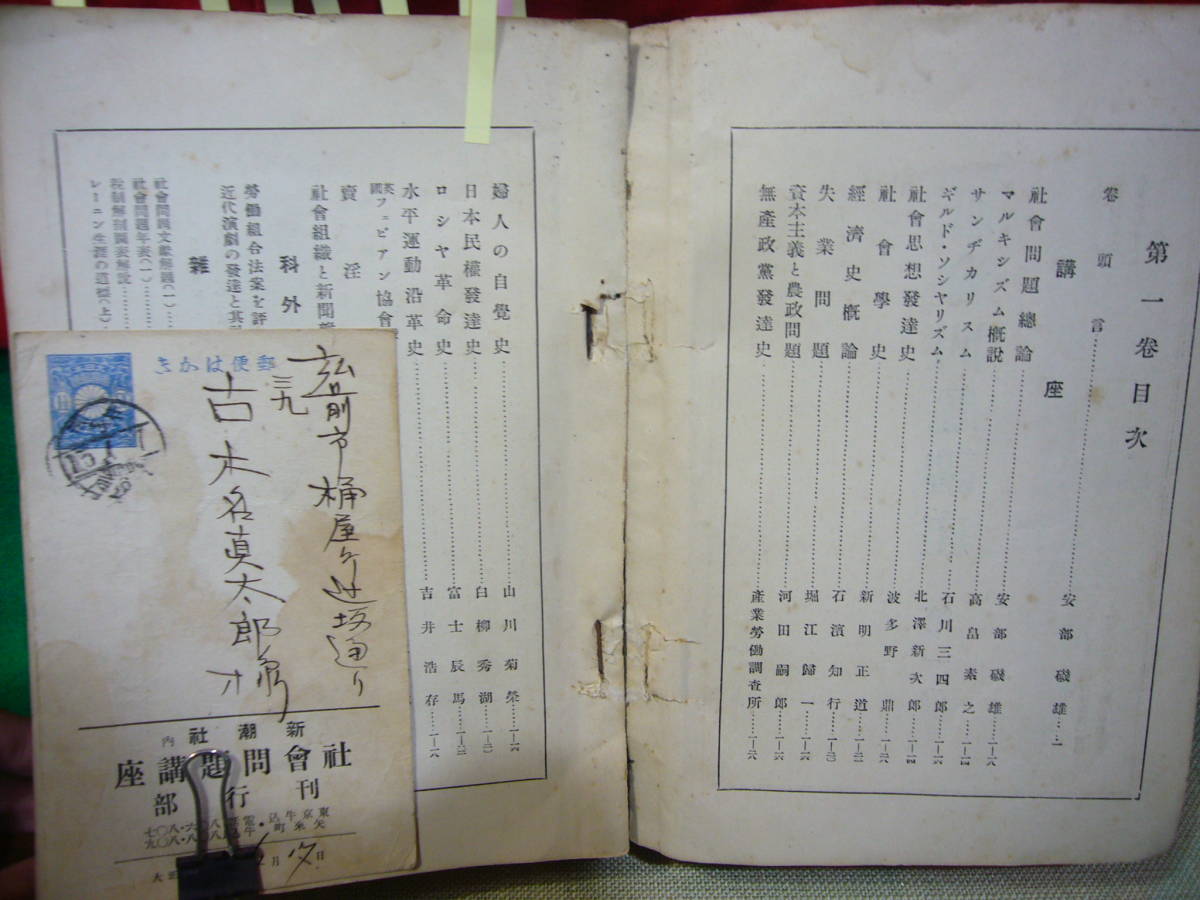 第一卷目次
卷頭言……安部磯雄……一
講座
社會問題總論……安部磯雄……一—一六
マルキシズム概說……高畠素之……一—一四
サンヂカリスム……石川三四郎……一—一六
ギルド・ソシヤリズム……北澤新次郎……一—一四
社會思想發達史……波多野鼎……一—一六
社會學史……新明正道……一—三二
經濟史概論……石濱知行……一—三二
失業問題……堀江歸一……一—一六
資本主義と農政問題……河田嗣郎……一—一六
無產政黨發達史……產業勞働調查所……一—一六
婦人の自覺史……山川菊榮……一—一六
日本民權發達史……白柳秀湖……一—三二
ロシヤ革命史……富士辰馬……一—三二
水平運動沿革史……吉井浩存……一—一六
英國フェビアン協會
賣淫
社會組織と新聞
科外
勞働組合法案を評
近代演劇の發達と其
雜
社會問題文獻解題(一)
社會問題年表(一)
稅制解剖圖表解說
レーニン生涯の道標(上)
郵便はかき
弘前市桶屋ケ辻坂通り
三九
古木名真太郎
新潮社內
社會問題講座
刊行部
東京牛込
矢來町
月 日